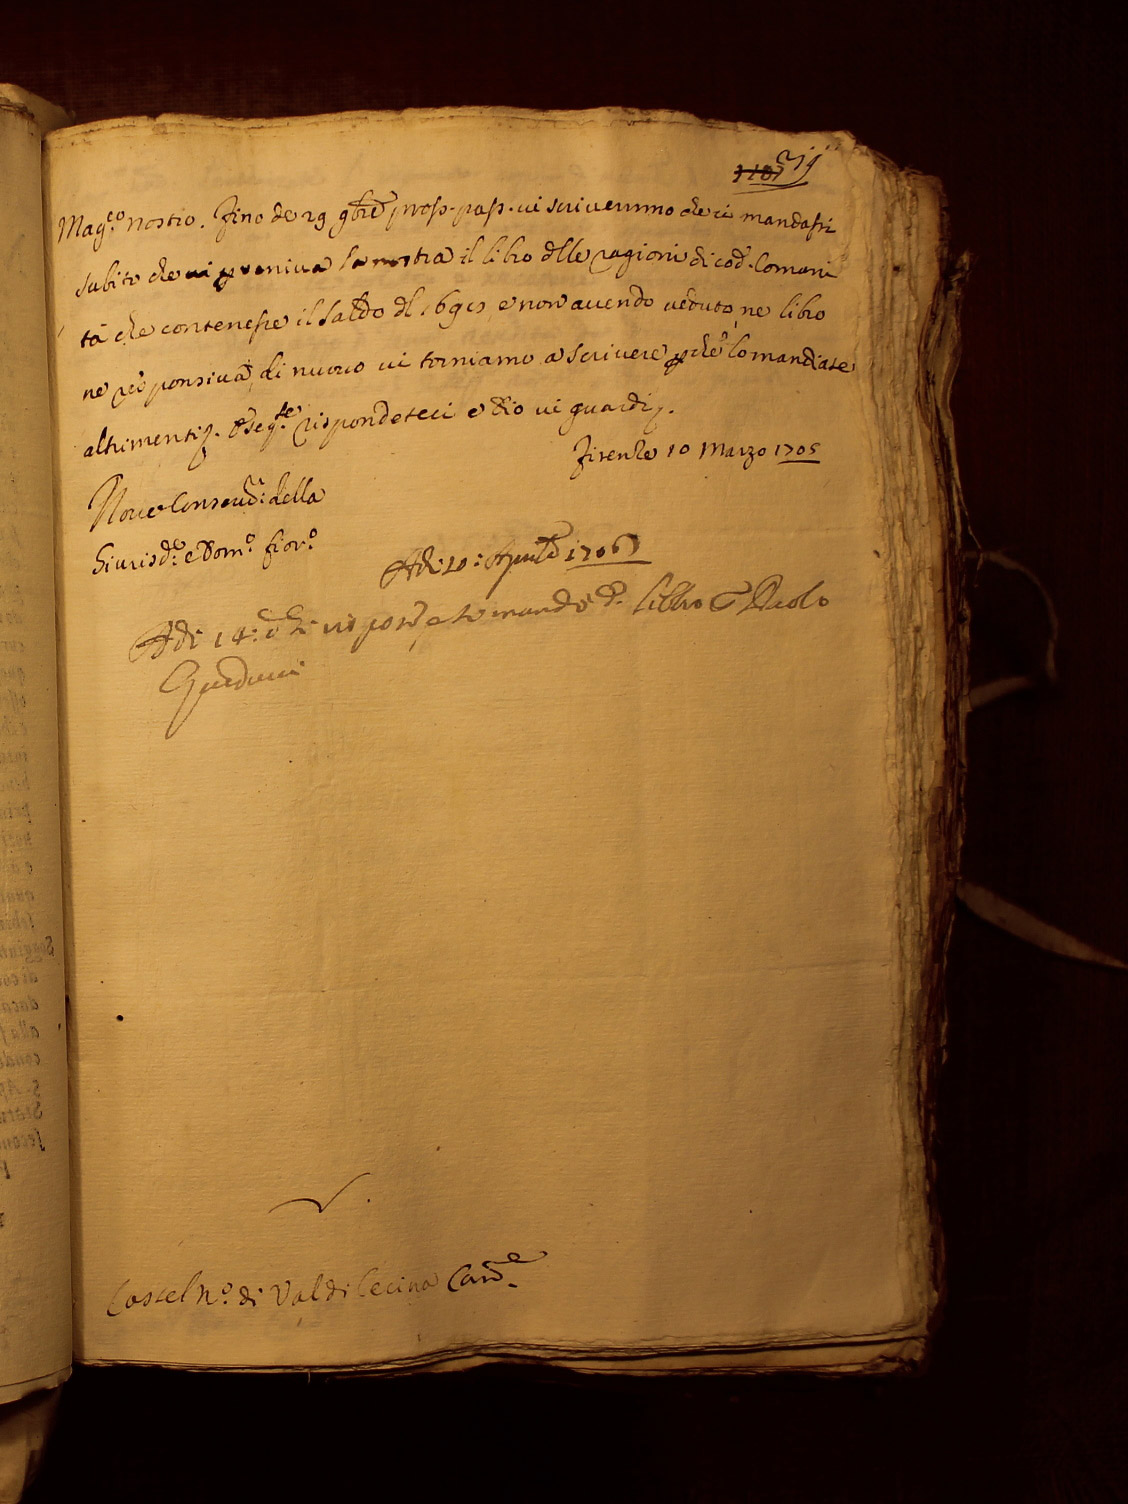 Mag.co nostro. Fino de 29 9bre pross. pass. vi scrivemmo che ci mandassi
subito che vi perveniva la nostra il libro dlle ragioni di cod. Comuni
tà che contenesse il saldo dl 1695 e non avendo veduto, ne libro
ne responsiva, di nuovo vi torniamo a scrivere perche lo mandiate
altrimenti. rispondeteci e Dio vi guardi.
Firenze 10 Marzo 1705
Nove Conservri. della
Giurisd.e e Dom.o fior.o
Adi 10: Aprile 1706
Adi 14: risposi e si mando d. libro Paolo
Castel N.o di Val di Cecina Canc.e